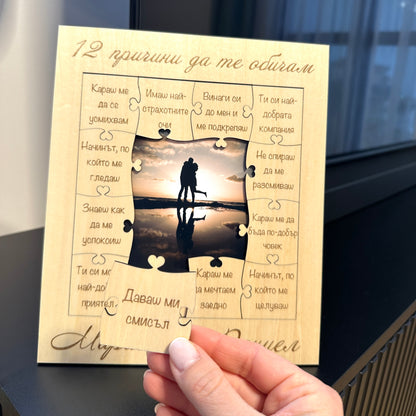 12 причини да те обичам
Караш ме
да се
усмихвам
Имаш най-
страхотните
очи
Винаги си
до мен и
ме подкрепяш
Ти си най-
добрата
компания
Начинът, по
който ме
гледаш
Не спираш
да ме
разсмиваш
Знаеш как
да ме
успокоиш
Караш ме да
бъда по-добър
човек
Ти си мо
най-до
приятел
Караш ме
да мечтаем
заедно
Начинът, по
който ме
целуваш
Даваш ми
смисъл